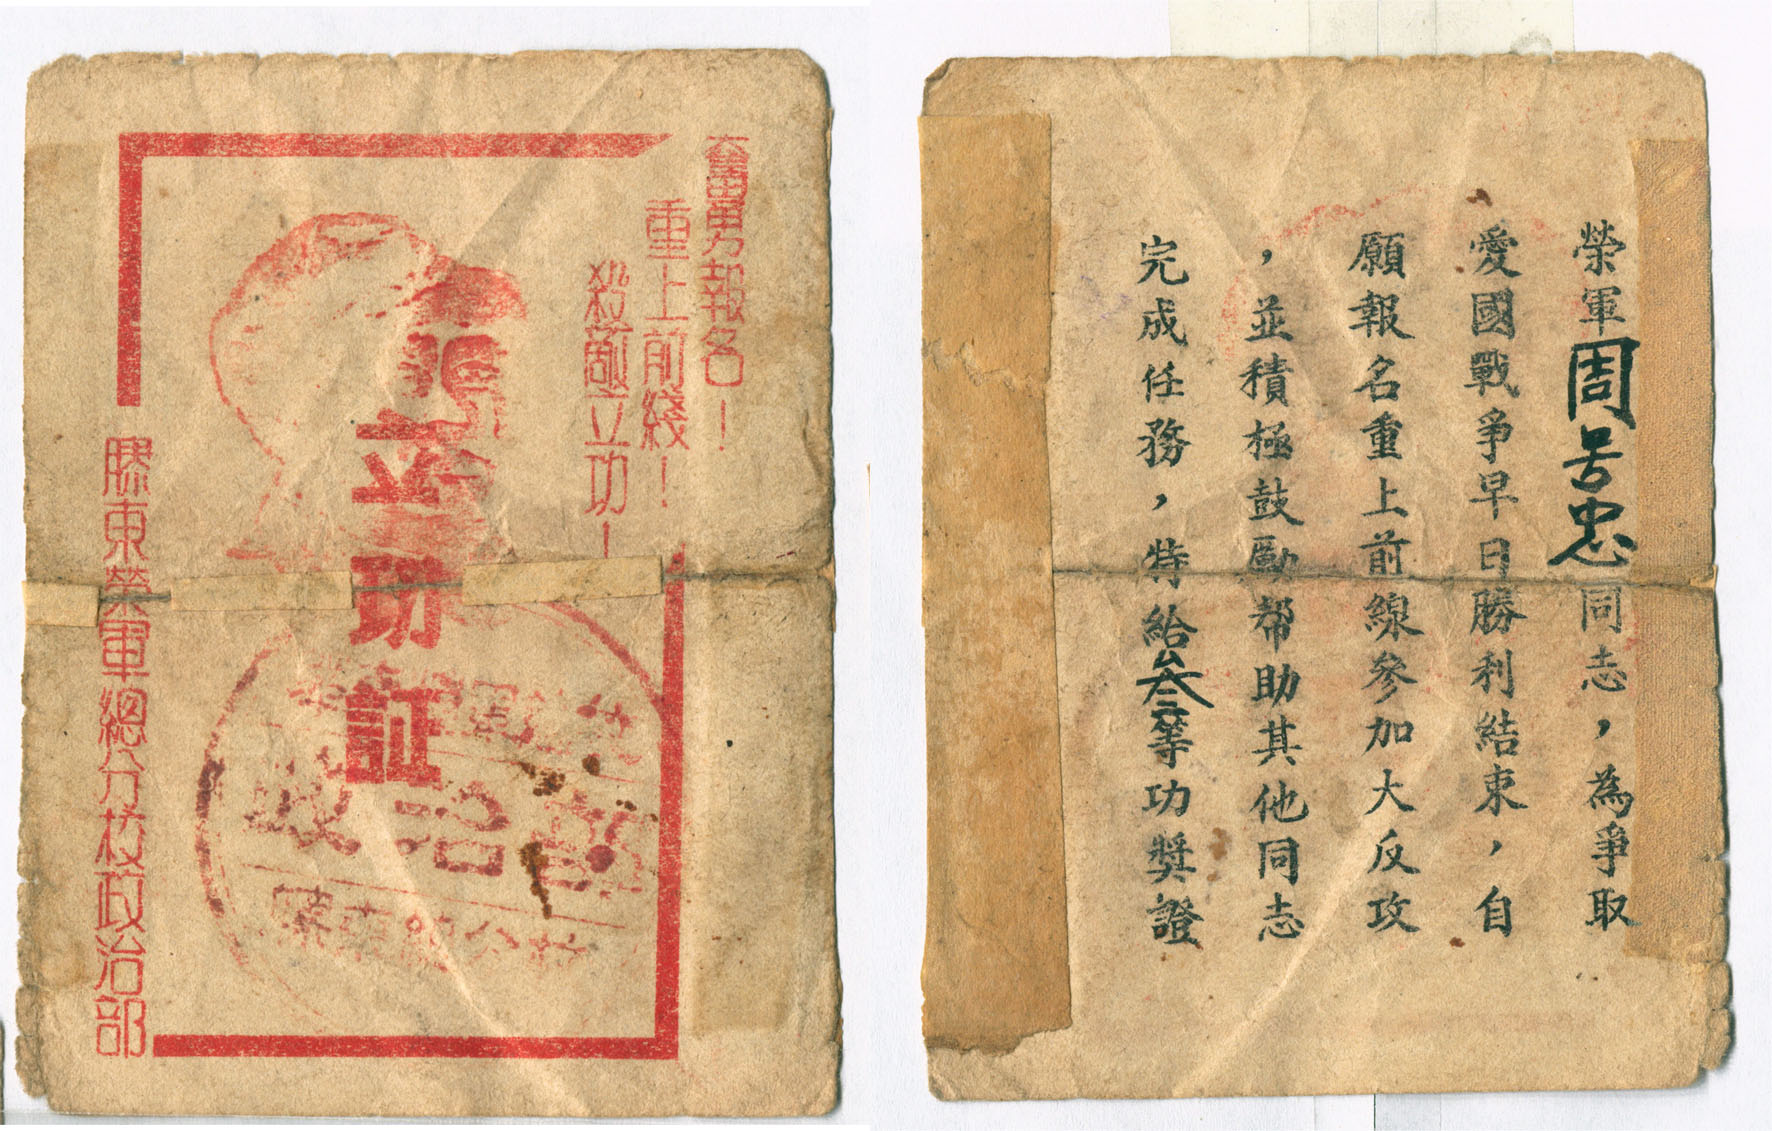 奮勇報名！
重上前綫！
殺敵立功！
立功証
膠東榮軍總分校政治部
政治部
膠東總分校
榮軍周吉忠同志，為爭取
愛國戰爭早日勝利結束，自
願報名重上前線參加大反攻
，並積極鼓勵帮助其他同志
完成任務，特給叁等功獎證